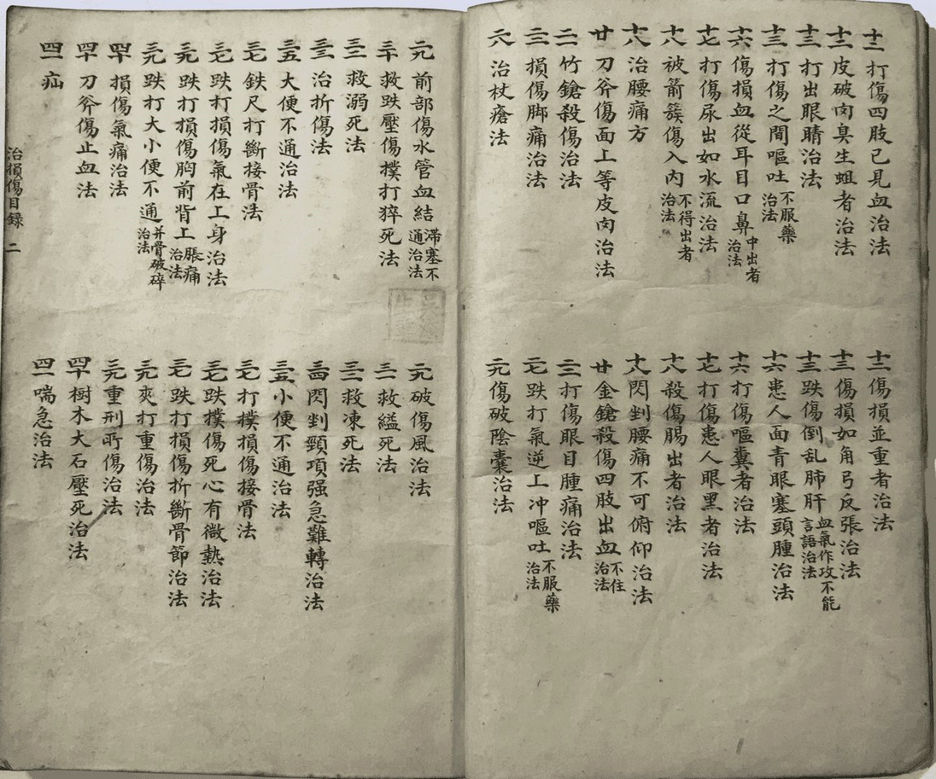 十二 打傷四肢已見血治法
十二 傷損並重者治法
十二 皮破肉臭生蛆者治法
十三 傷損如角弓反張治法
十三 打出眼睛治法
十三 跌傷倒乱肺肝血氣作攻不能言語治法
十三 打傷之間嘔吐不服藥治法
十六 患人面青眼塞頭腫治法
十六 傷損血從耳目口鼻中出者治法
十六 打傷嘔糞者治法
十七 打傷尿出如水流治法
十七 打傷患人眼黑者治法
十八 被箭簇傷入内不得出者治法
十八 殺傷腸出者治法
十八 治腰痛方
十八 閃剉腰痛不可俯仰治法
廿 刀斧傷面上等皮肉治法
廿 金鎗殺傷四肢出血不住治法
二一 竹鎗殺傷治法
二三 打傷眼目腫痛治法
二三 損傷脚痛治法
二七 跌打氣逆上冲嘔吐不服藥治法
二六 治杖瘡法
二九 傷破陰囊治法
二九 前部傷水管血結滯塞不通治法
二九 破傷風治法
三十 救跌壓傷撲打猝死法
三一 救縊死法
三二 救溺死法
三三 救凍死法
三三 治折傷法
三四 閃剉頸項强急難轉治法
三五 大便不通治法
三五 小便不通治法
三七 鉄尺打斷接骨法
三七 打撲損傷接骨法
三七 跌打損傷氣在上身治法
三七 跌撲傷死心有微熱治法
三九 跌打損傷胸前背上脹痛治法
三七 跌打損傷折斷骨節治法
三九 跌打大小便不通并骨破碎治法
三九 夾打重傷治法
四十 損傷氣痛治法
三九 重刑所傷治法
四十 刀斧傷止血法
四十 樹木大石壓死治法
四一 疝
四一 喘急治法
治損傷目録 二